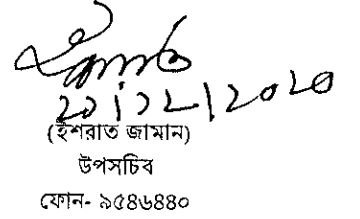 ২০|১২|২০২০
(ইশরাত জামান)
উপসচিব
ফোন- ৯৫৪৬৪৪০